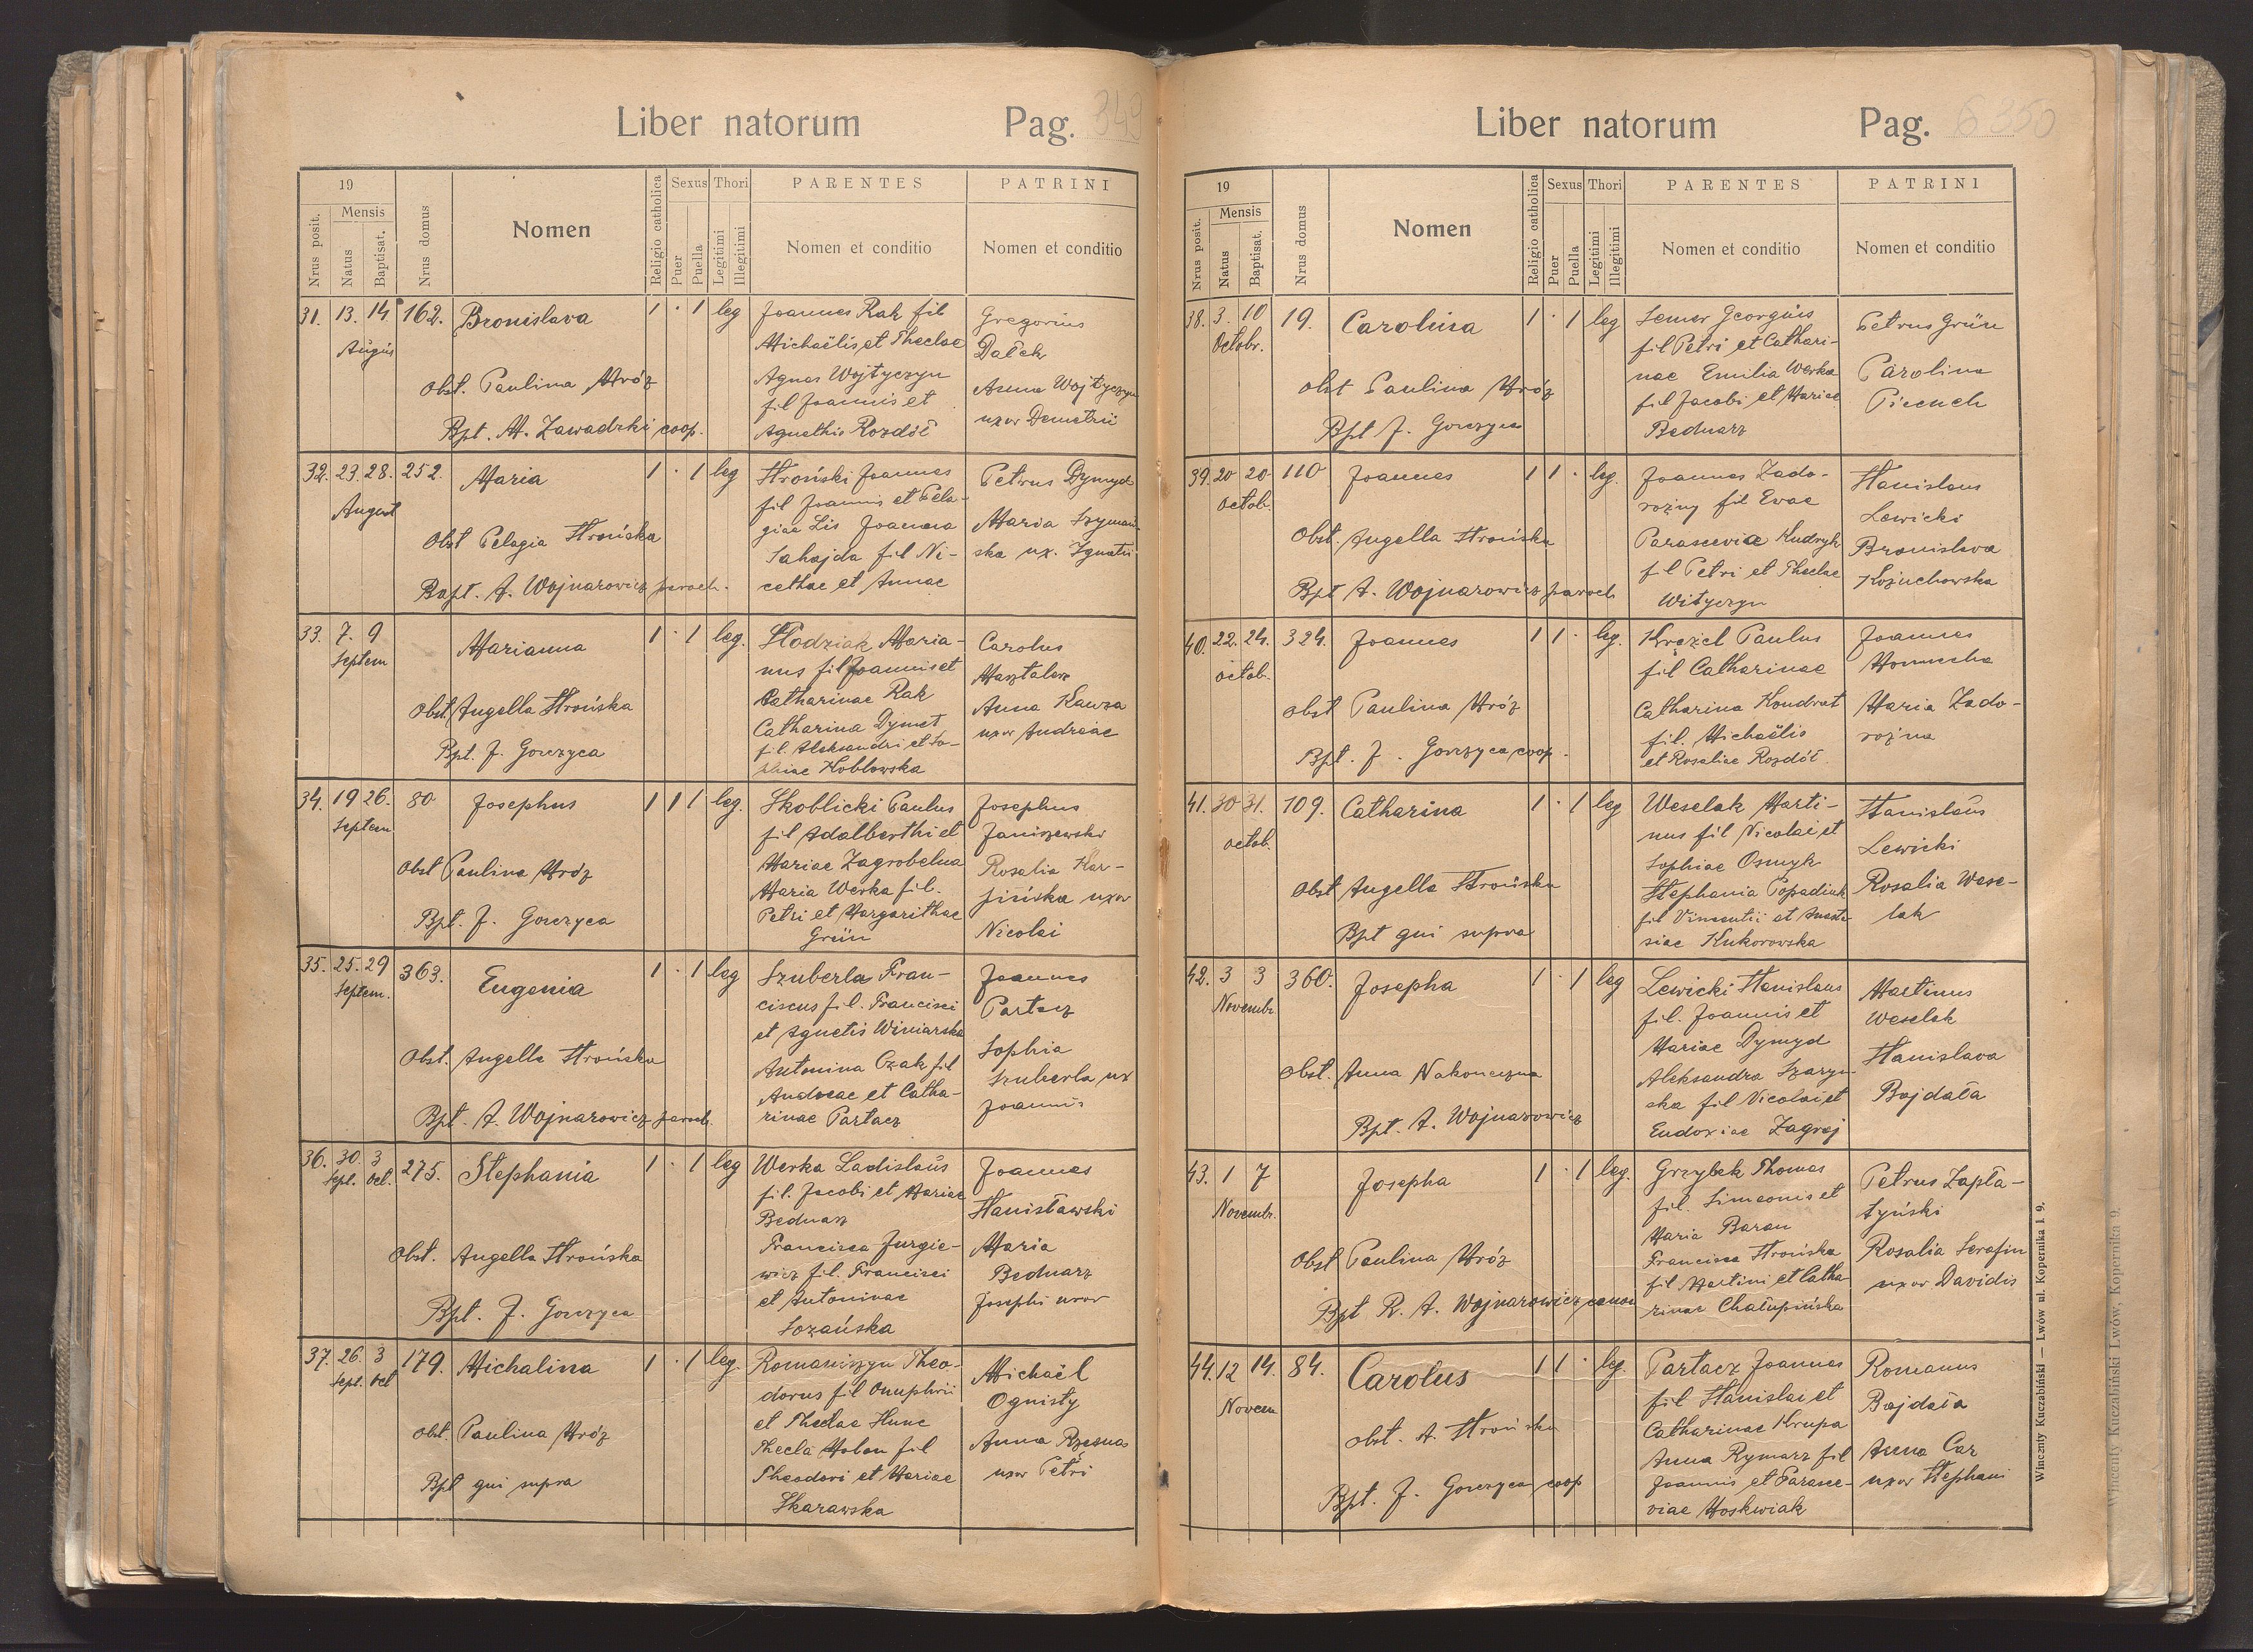 Liber natorum Pag. 349
19
Mensis
Nrus posit.
Natus
Baptisat.
Nrus domus
Nomen
Religio catholica
Sexus
Puer
Puella
Thori
Legitimi
Illegitimi
PARENTES
Nomen et conditio
PATRINI
Nomen et conditio
31. 13. 14. 162. Bronislava 1 · 1 leg
August
Obst. Paulina Mróz
Bpt. M. Zawadzki coop.
Joannes Rak fil
Michaëlis et Theclae
Agnes Wojtyczyn
fil Joannis et
Agnethis Rozdół
Gregorius
Dałek
Anna Wojtyczyn
uxor Demetrii
32. 23. 28. 252. Maria 1 · 1 leg
August
Obst Pelagia Strońska
Bapt. A. Wojnarowicz paroch.
Stroński Joannes
fil Joannis et Pela-
giae Lis Joanna
Sahajda fil Ni-
cethae et Annae
Petrus Dymyd
Maria Szymań-
ska ux. Ignatii
33. 7. 9 Marianna 1 · 1 leg.
Septem
Obst. Angella Strońska
Bpt. J. Gorczyca
Słodziak Maria-
nus fil Joannis et
Catharinae Rak
Catharina Dymet
fil. Aleksandri et So-
phiae Koblowska
Carolus
Masztalerz
Anna Kawza
uxor Andreae
34. 19 26. 80 Josephus 1 1 1 leg.
Septem
Obst Paulina Mróz
Bpt. J. Gorczyca
Skoblicki Paulus
fil Adalberthi et
Mariae Zagrobelna
Maria Werka fil.
Petri et Margarithae
Grün
Josephus
Janiszewski
Rosalia Kar-
pińska uxor
Nicolai
35. 25. 29 363. Eugenia 1 · 1 leg
Septem.
Obst. Angella Strońska
Bpt. A. Wojnarowicz paroch.
Szuberla Fran-
ciscus fil. Francisci
et Agnetis Winiarska
Antonina Czak fil
Andreae et Catha-
rinae Partacz
Joannes
Partacz
Sophia
Szuberla ux
Joannis
36. 30. 3 275. Stephania 1 · 1 leg
Sept. Oct.
Obst. Angella Strońska
Bpt. J. Gorczyca
Werka Ladislaus
fil. Jacobi et Mariae
Bednarz
Francisca Jurgie-
wicz fil. Francisci
et Antoninae
Łozańska
Joannes
Stanisławski
Maria
Bednarz
Josephi uxor
37. 26. 3 179. Michalina 1 · 1 leg.
Sept. Oct
Obst. Paulina Mróz
Bpt qui supra
Romaniszyn Theo-
dorus fil Onuphrii
et Theclae Hunc
Thecla Holon fil
Theodori et Mariae
Skarawska
Michaël
Ognisty
Anna
uxor Petri
Liber natorum Pag. 6 350
19
Mensis
Nrus posit.
Natus
Baptisat.
Nrus domus
Nomen
Religio catholica
Sexus
Puer
Puella
Thori
Legitimi
Illegitimi
PARENTES
Nomen et conditio
PATRINI
Nomen et conditio
38. 3. 10 19. Carolina 1 · 1 leg
Octobr.
Obst Paulina Mróz
Bpt J. Gorczyca
Semer Georgius
fil Petri et Cathari-
nae Emilia Werka
fil Jacobi et Mariae
Bednarz
Petrus Grün
Carolina
Piecuch
39. 20 20 110 Joannes 1 1 · leg.
Octob.
Obst. Angella Strońska
Bpt A. Wojnarowicz paroch
Joannes Zado-
rożny fil Evae
Parascevia Kudryk
fil Petri et Theclae
Wityczyn
Stanislaus
Lewicki
Bronislava
Kożuchowska
40. 22. 24. 324. Joannes 1 1 · leg.
Octob.
Obst Paulina Mróz
Bpt. J. Gorczyca coop.
Krężel Paulus
fil Catharinae
Catharina Kondrat
fil. Michaëlis
et Rosaliae Rozdół
Joannes
Maria Zado-
rożna
41. 30 31. 109. Catharina 1 · 1 leg
Octob.
Obst Angella Strońska
Bpt qui supra
Weselak Marti-
nus fil Nicolai et
Sophiae Osmyk
Stephania Popadiuk
fil Vincentii et Anasta-
siae Kukorowska
Stanislaus
Lewicki
Rosalia Wese-
lak
42. 3 3 360. Josepha 1 · 1 leg
Novembr.
Obst. Anna Nakoneczna
Bpt. A. Wojnarowicz
Lewicki Stanislaus
fil. Joannis et
Mariae Dymyd
Aleksandra Szaryń-
ska fil Nicolai et
Eudoxiae Zagrój
Martinus
Weselak
Stanislava
Bajdała
43. 1 7 Josepha 1 · 1 leg.
Novembr.
Obst Paulina Mróz
Bpt R. A. Wojnarowicz canon
Grzybek Thomas
fil. Simeonis et
Maria Baran
Francisca Strońska
fil Martini et Catha-
rinae Chałupińska
Petrus Zapła-
tyński
Rosalia Serafin
uxor Davidis
44. 12 14. 84. Carolus 1 1 · leg.
Novem
Obst. A. Strońska
Bpt. J. Gorczyca coop
Partacz Joannes
fil Stanislai et
Catharinae Krupa
Anna Rymarz fil
Joannis et Parasce-
viae Moskwiak
Romanus
Bajdała
Anna Car
uxor Stephani
Winczenty Kuczabiński — Lwów ul. Kopernika l. 9.
Winczenty Kuczabiński Lwów, Kopernika 9.